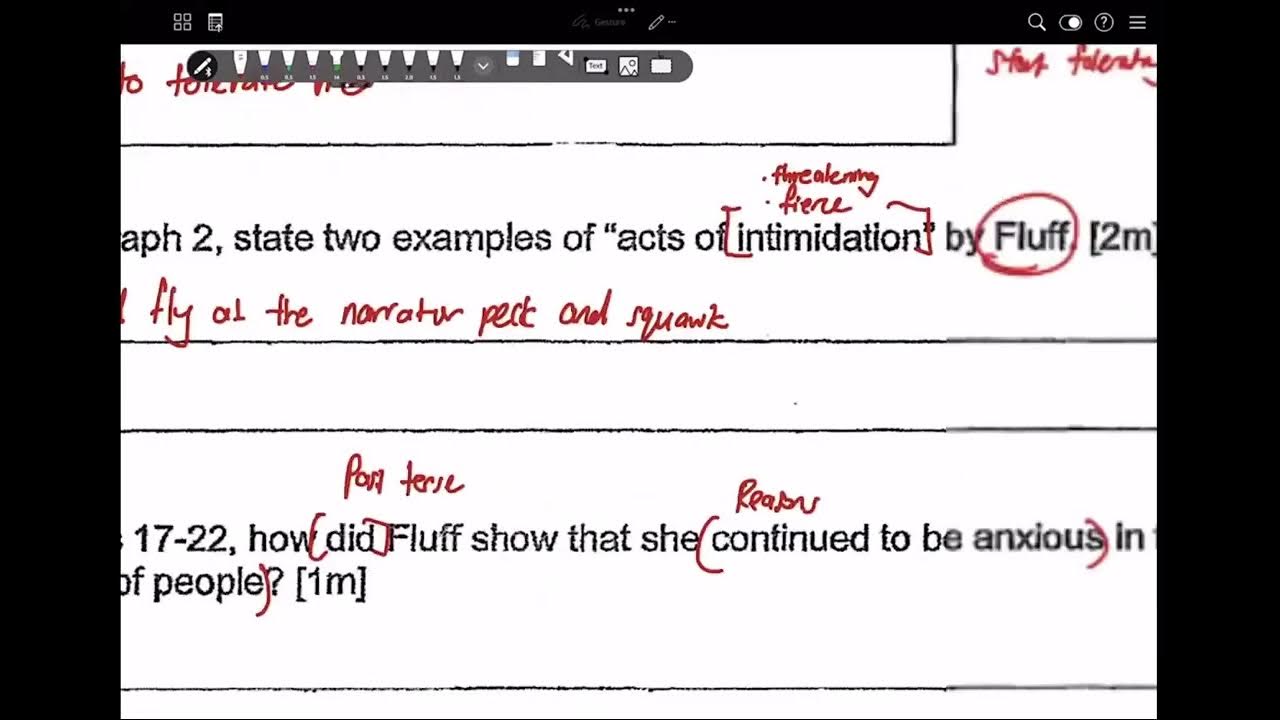 Gesture
0.5 0.5 1.5 14 0.3 1.5 2.0 1.5 1.5
Text
to tolerate me
start tolerating
• threatening
• fierce
aph 2, state two examples of “acts of intimidation” by Fluff. [2m]
fly at the narrator peck and squawk
Past tense
Reasons
17-22, how did Fluff show that she continued to be anxious in
of people? [1m]